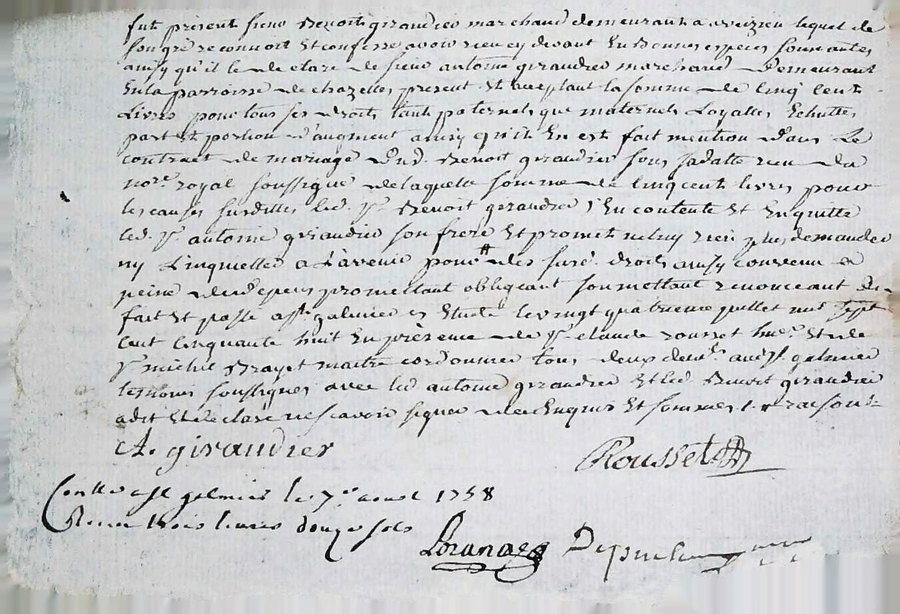 fut présent sieur Benoit girandier marchand demeurant a veizien lequel de
son gré reconnoit et confesse avoir receu cy devant en bonnes especes sonnantes
ainsy qu'il le declare de sieur antoine girandier marchand demeurant
en la parroisse de chazelles present et aceptant la somme de cinq cent
livres pour tous ses droits tant paternels que maternels Loyattes Echuttes
part et portion d'augment ainsy qu'il en est fait mention dans Le
contract de mariage dud. Benoit girandier sous sa datte receu du
nore royal soussigné de laquelle somme de cinq cent livres pour
les causes susdittes led. sr Benoit girandier s'en contente et en quitte
led. sr antoine girandier son frere et promet ne luy rien plus demander
ny L'inquietter a L'avenir pour des susd. droits ainsy convenu a
peine de depens promettant obligeant soumettant renonceant &
fait et passé a st galmier es Etude le vingt quatrieme juillet mil sept
cent cinquante huit en présence de sr claude rousset et de
sr michel Brayet maitre cordonnier tous deux demts aud st galmier
temoins soussignes avec led antoine girandier et led Benoit girandier
a dit et declare ne scavoir signer de ce Enquis et sommes
A. giraudier
Rousset
Conlle a st galmier le 7e aout 1758
Receu trois livres douze sols